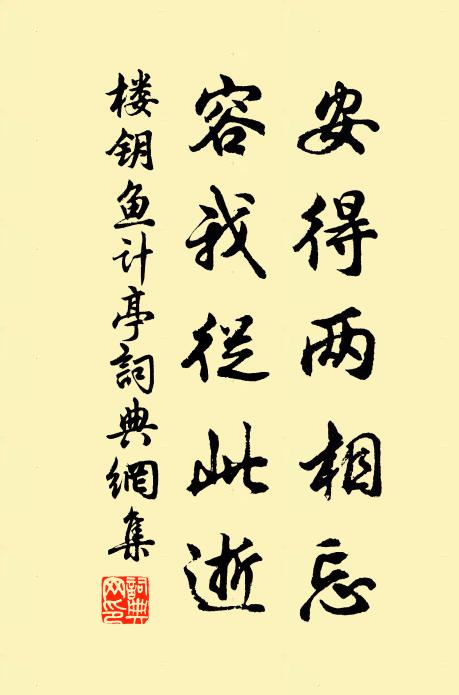 安得两相忘
容我從此逝
楼钥鱼计亭詞典網集
詞典网印